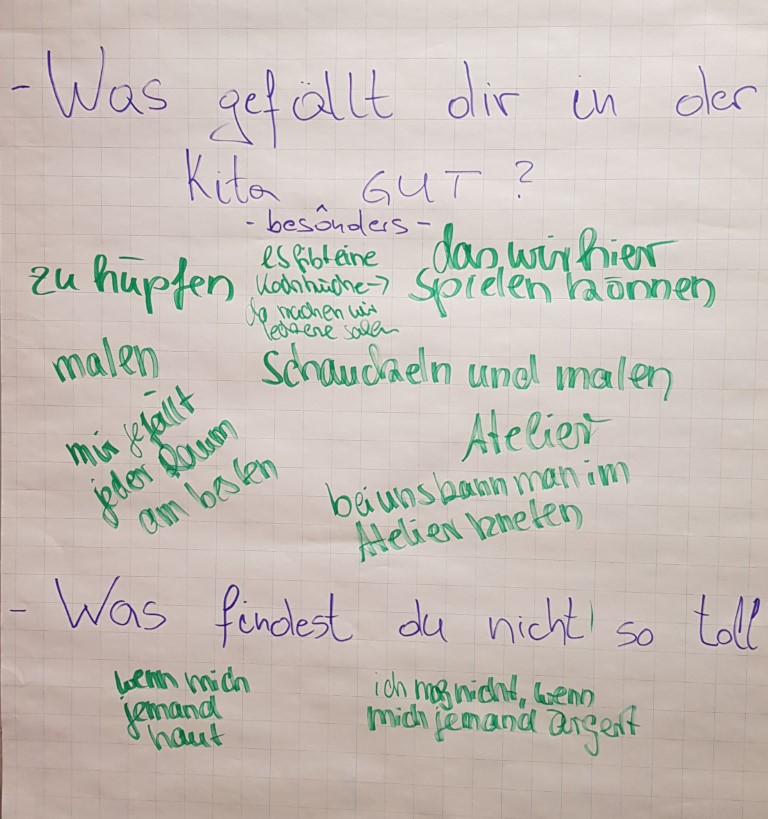 - Was gefällt dir in der
Kita GUT?
- besonders -
zu hüpfen
es gibt eine
Kochküche →
da machen wir
leckere
das wir hier
spielen können
malen
Schauckeln und malen
mir gefällt
jeder Raum
am besten
Atelier
bei uns kann man im
Atelier kneten
- Was findest du nicht so toll
wenn mich
jemand
haut
ich mag nicht, wenn
mich jemand ärgert